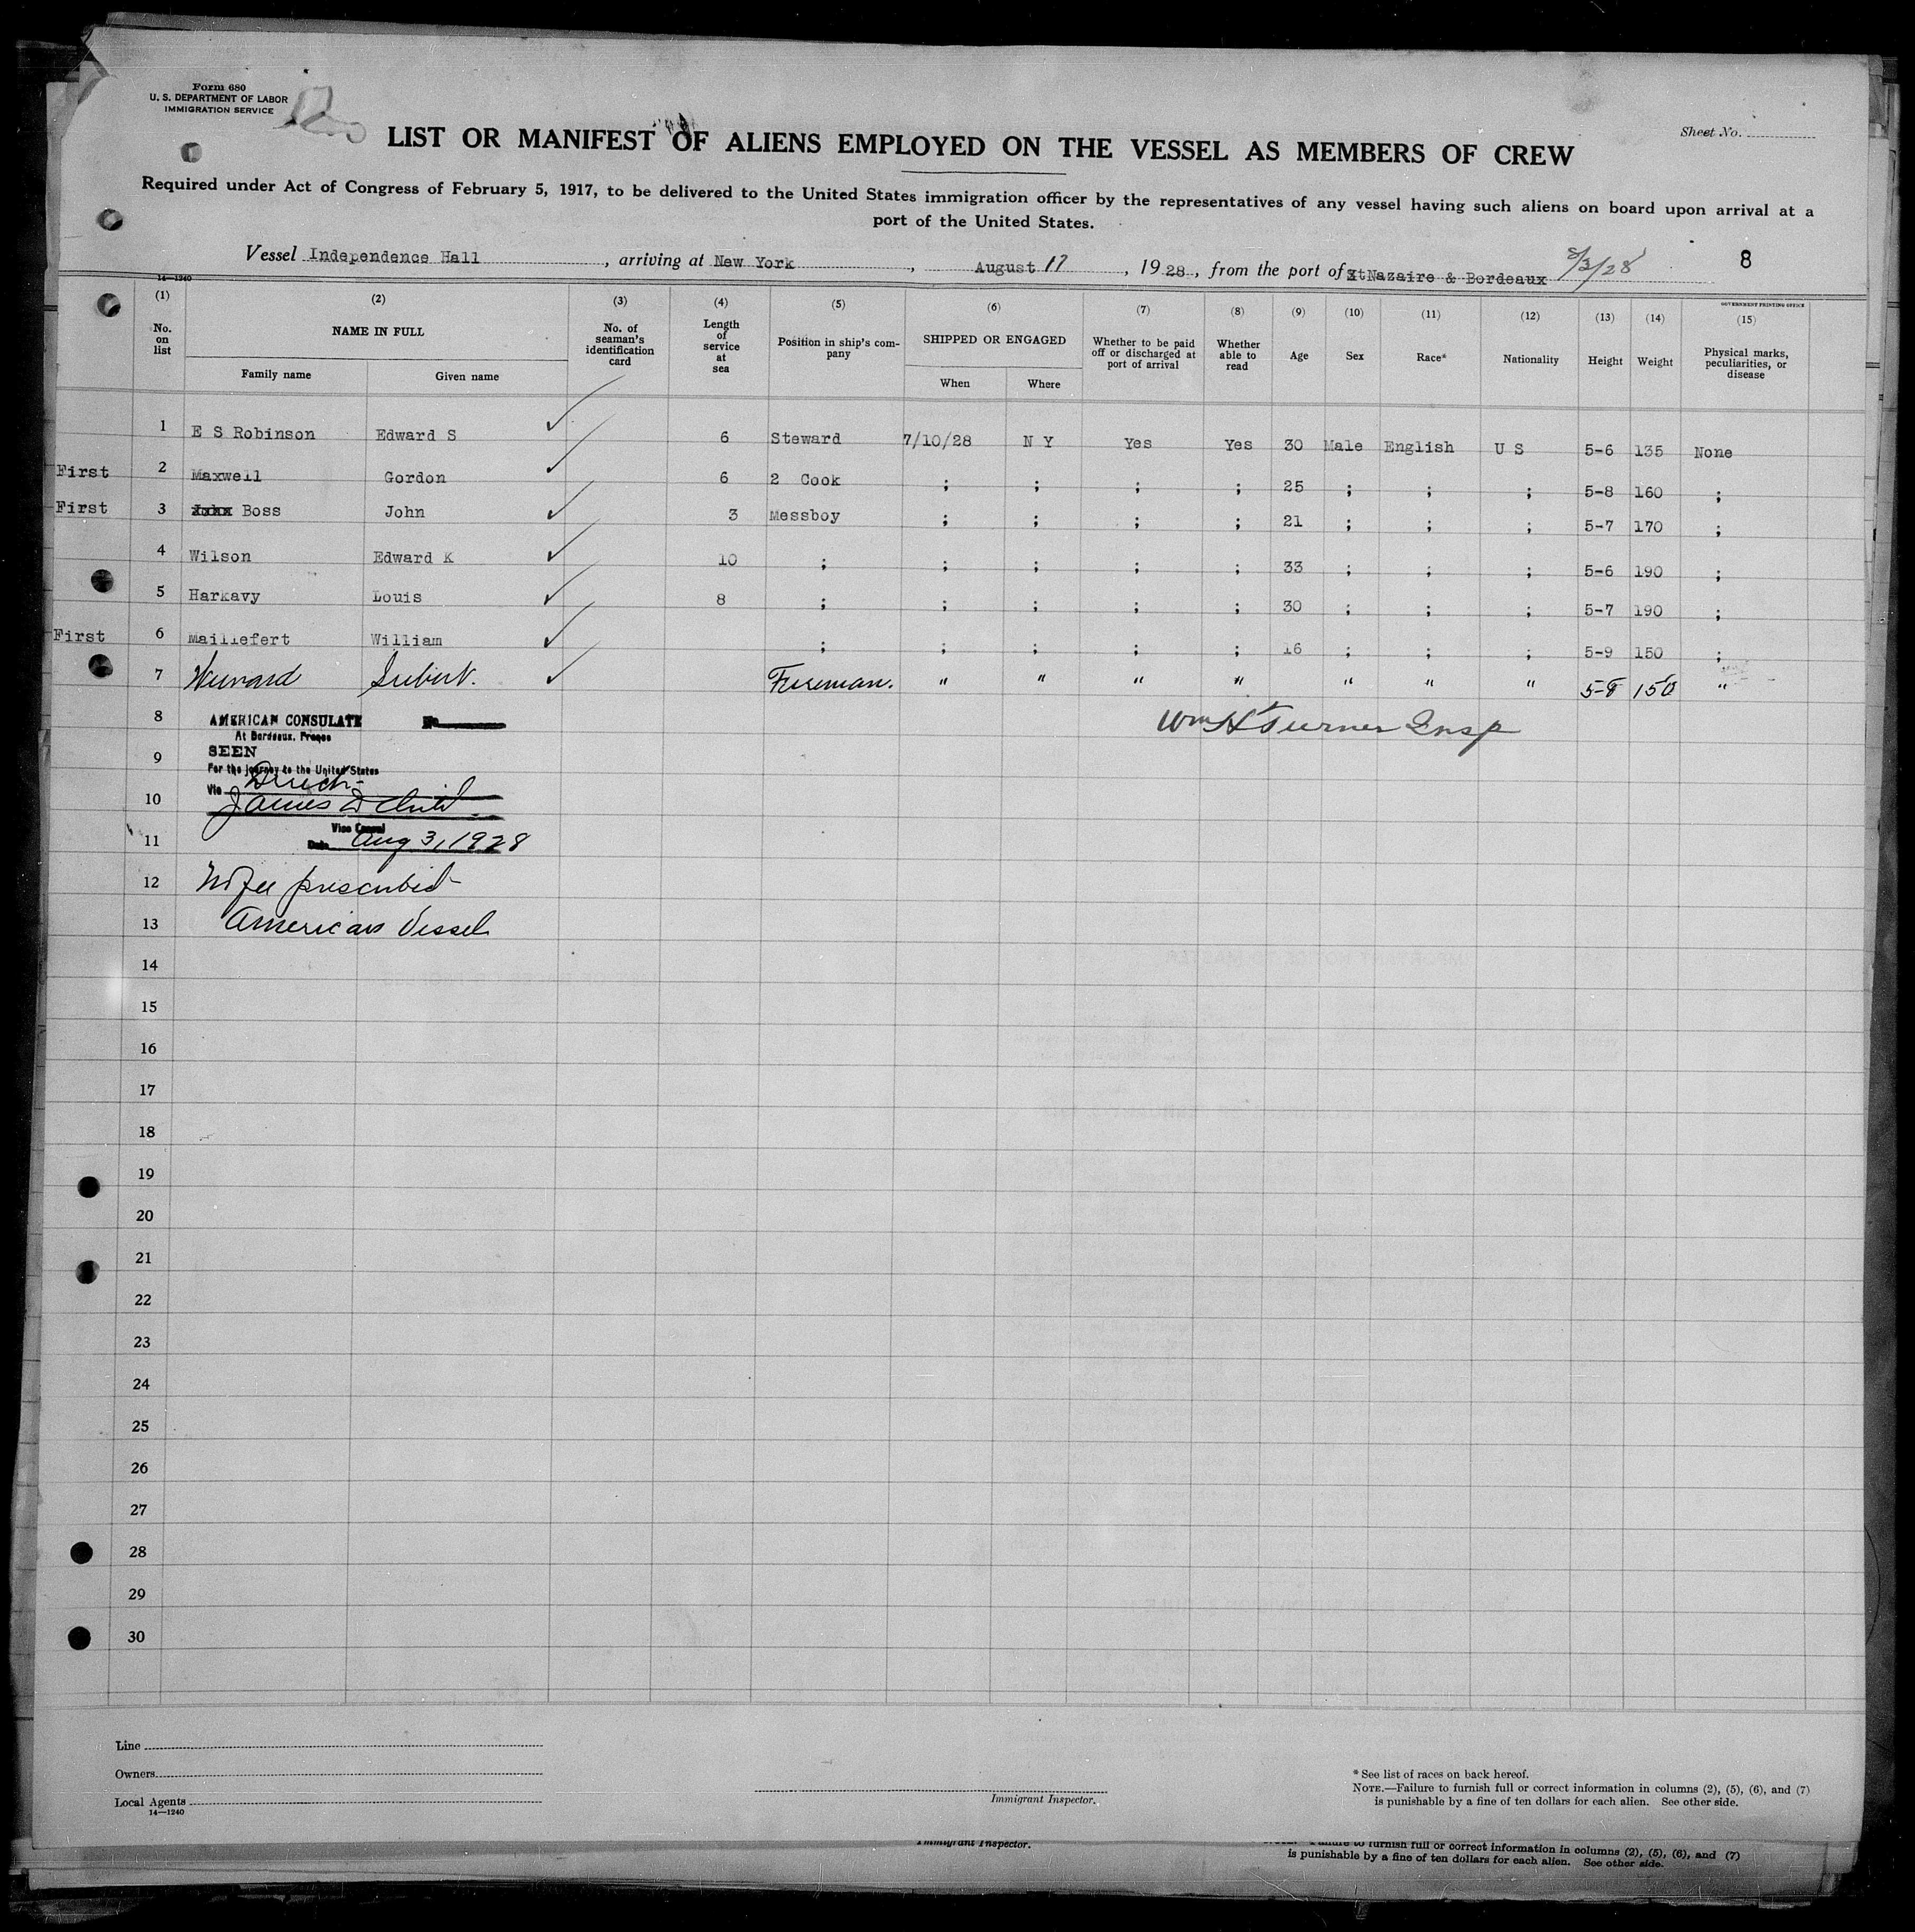 Form 680
U. S. DEPARTMENT OF LABOR
IMMIGRATION SERVICE
Sheet No.
LIST OR MANIFEST OF ALIENS EMPLOYED ON THE VESSEL AS MEMBERS OF CREW
Required under Act of Congress of February 5, 1917, to be delivered to the United States immigration officer by the representatives of any vessel having such aliens on board upon arrival at a
port of the United States.
Vessel Independence Hall, arriving at New York, August 17, 1928, from the port of StNazaire & Bordeaux 8/3/28 8
14—1240
GOVERNMENT PRINTING OFFICE
(1) (2) (3) (4) (5) (6) (7) (8) (9) (10) (11) (12) (13) (14) (15)
No. on list NAME IN FULL No. of seaman's identification card Length of service at sea Position in ship's company SHIPPED OR ENGAGED Whether to be paid off or discharged at port of arrival Whether able to read Age Sex Race* Nationality Height Weight Physical marks, peculiarities, or disease
Family name Given name When Where
1 E S Robinson Edward S 6 Steward 7/10/28 N Y Yes Yes 30 Male English U S 5-6 135 None
First 2 Maxwell Gordon 6 2 Cook ; ; ; ; 25 ; ; ; 5-8 160 ;
First 3 Boss John 3 Messboy ; ; ; ; 21 ; ; ; 5-7 170 ;
4 Wilson Edward K 10 ; ; ; ; ; 33 ; ; ; 5-6 190 ;
5 Harkavy Louis 8 ; ; ; ; ; 30 ; ; ; 5-7 190 ;
First 6 Maillefert William ; ; ; ; ; 16 ; ; ; 5-9 150 ;
7 Fireman. " " " " " " " 5-8 150 "
8 AMERICAN CONSULATE No
At Bordeaux, France
Wm H Turner Insp
SEEN
9
For the journey to the United States
Via Direct
10 James D Child
Vice Consul
11 Date Aug 3, 1928
12 No fee prescribed
13 American Vessel
14
15
16
17
18
19
20
21
22
23
24
25
26
27
28
29
30
Line
Owners
Local Agents
14—1240
Immigrant Inspector.
* See list of races on back hereof.
NOTE.—Failure to furnish full or correct information in columns (2), (5), (6), and (7)
is punishable by a fine of ten dollars for each alien. See other side.
Immigrant Inspector.
Failure to furnish full or correct information in columns (2), (5), (6), and (7)
is punishable by a fine of ten dollars for each alien. See other side.